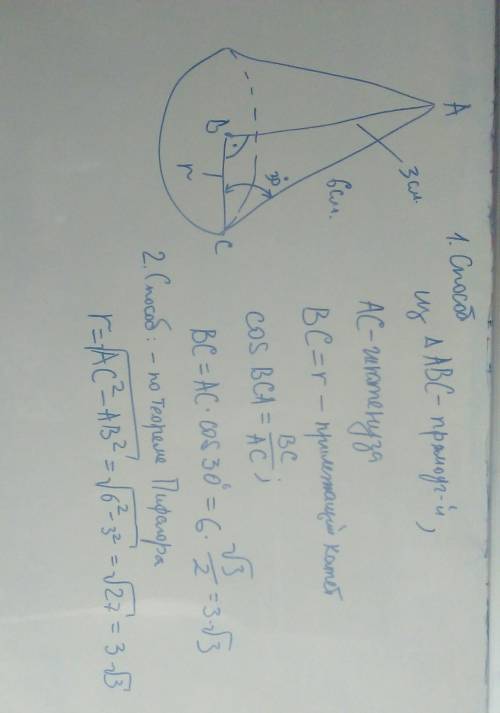 A
B
C
r
30°
6 см.
3 см.
1. Способ
из △ABC - прямоуг-й,
AC - гипотенуза
BC = r - прилежащий катет
cos BCA = BC/AC;
BC = AC · cos 30° = 6 · √3/2 = 3√3
2. Способ: - по теореме Пифагора
r = √AC² - AB² = √6² - 3² = √27 = 3√3